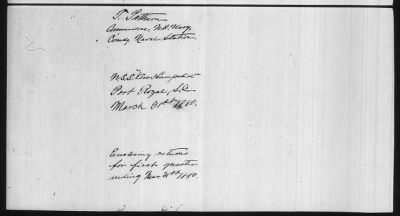 T. Pattison
Commodore, U.S. Navy,
Comdg Naval Station
U.S.S. "New Hampshire"
Port Royal, S.C.
March 31st 1880.
Enclosing returns
for first quarter
ending Mar 31st 1880.